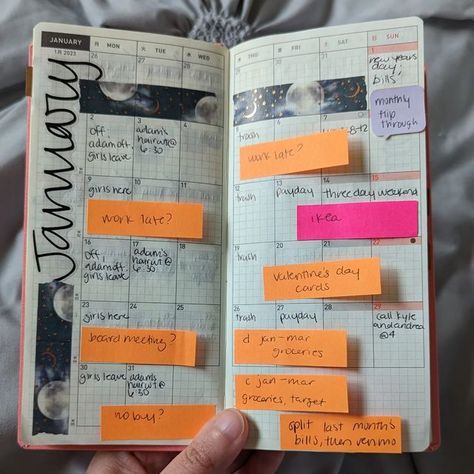 JANUARY
1月 2023
月 MON
火 TUE
水 WED
木 THU
金 FRI
土 SAT
日 SUN
January
new years
day;
bills,
monthly
flip
through
2
off;
adam off.
girls leave
3
adam's
haircut @
6:30
4
5
trash
6
7
8-12
8
work late?
9
girls here
10
11
12
trash
13
payday
14
three day weekend
work late?
ikea
16
off,
adam off.
17
adam's
haircut @
6:30
18
19
trash
20
21
22
valentine's day
cards
23
girls here
24
25
26
trash
27
payday
28
29
call kyle
and andrea
@4
board meeting?
d jan-mar
groceries
30
girls leave
31
adam's
haircut @
6:30
c jan-mar
groceries, target
no buy?
split last month's
bills, then venmo